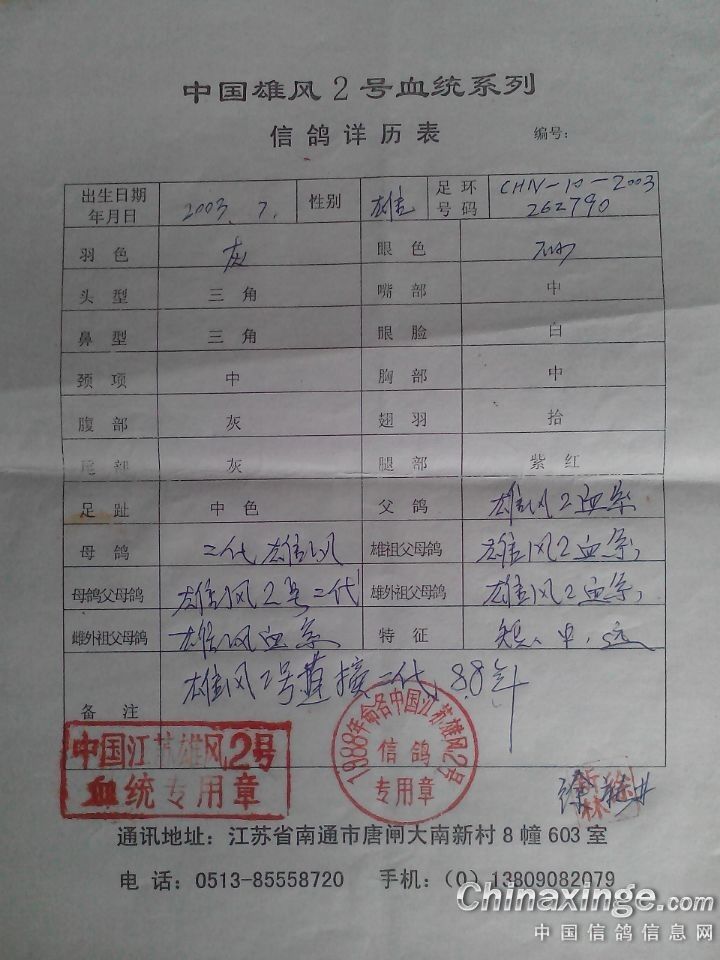 中国雄风2号血统系列
信鸽详历表 编号：
出生日期 年月日 2003.7. 性别 雄 足环号码 CHN-10-2003 262790
羽色 灰 眼色
头型 三角 嘴部 中
鼻型 三角 眼脸 白
颈项 中 胸部 中
腹部 灰 翅羽 抬
尾部 灰 腿部 紫红
足趾 中色 父鸽 雄风2血系
母鸽 二代雄风 雄祖父母鸽 雄风2血系
母鸽父母鸽 雄风2号二代 雄外祖父母鸽 雄风2血系
雌外祖父母鸽 雄风血系 特征 短、中、远
备注 雄风2号直接二代 88年
中国江苏雄风2号
血统专用章
1988年命名中国江苏雄风2号
信鸽
专用章
通讯地址：江苏省南通市唐闸大南新村8幢603室
电话：0513-85558720 手机：(0)13809082079
Chinaxinge.com
中国信鸽信息网